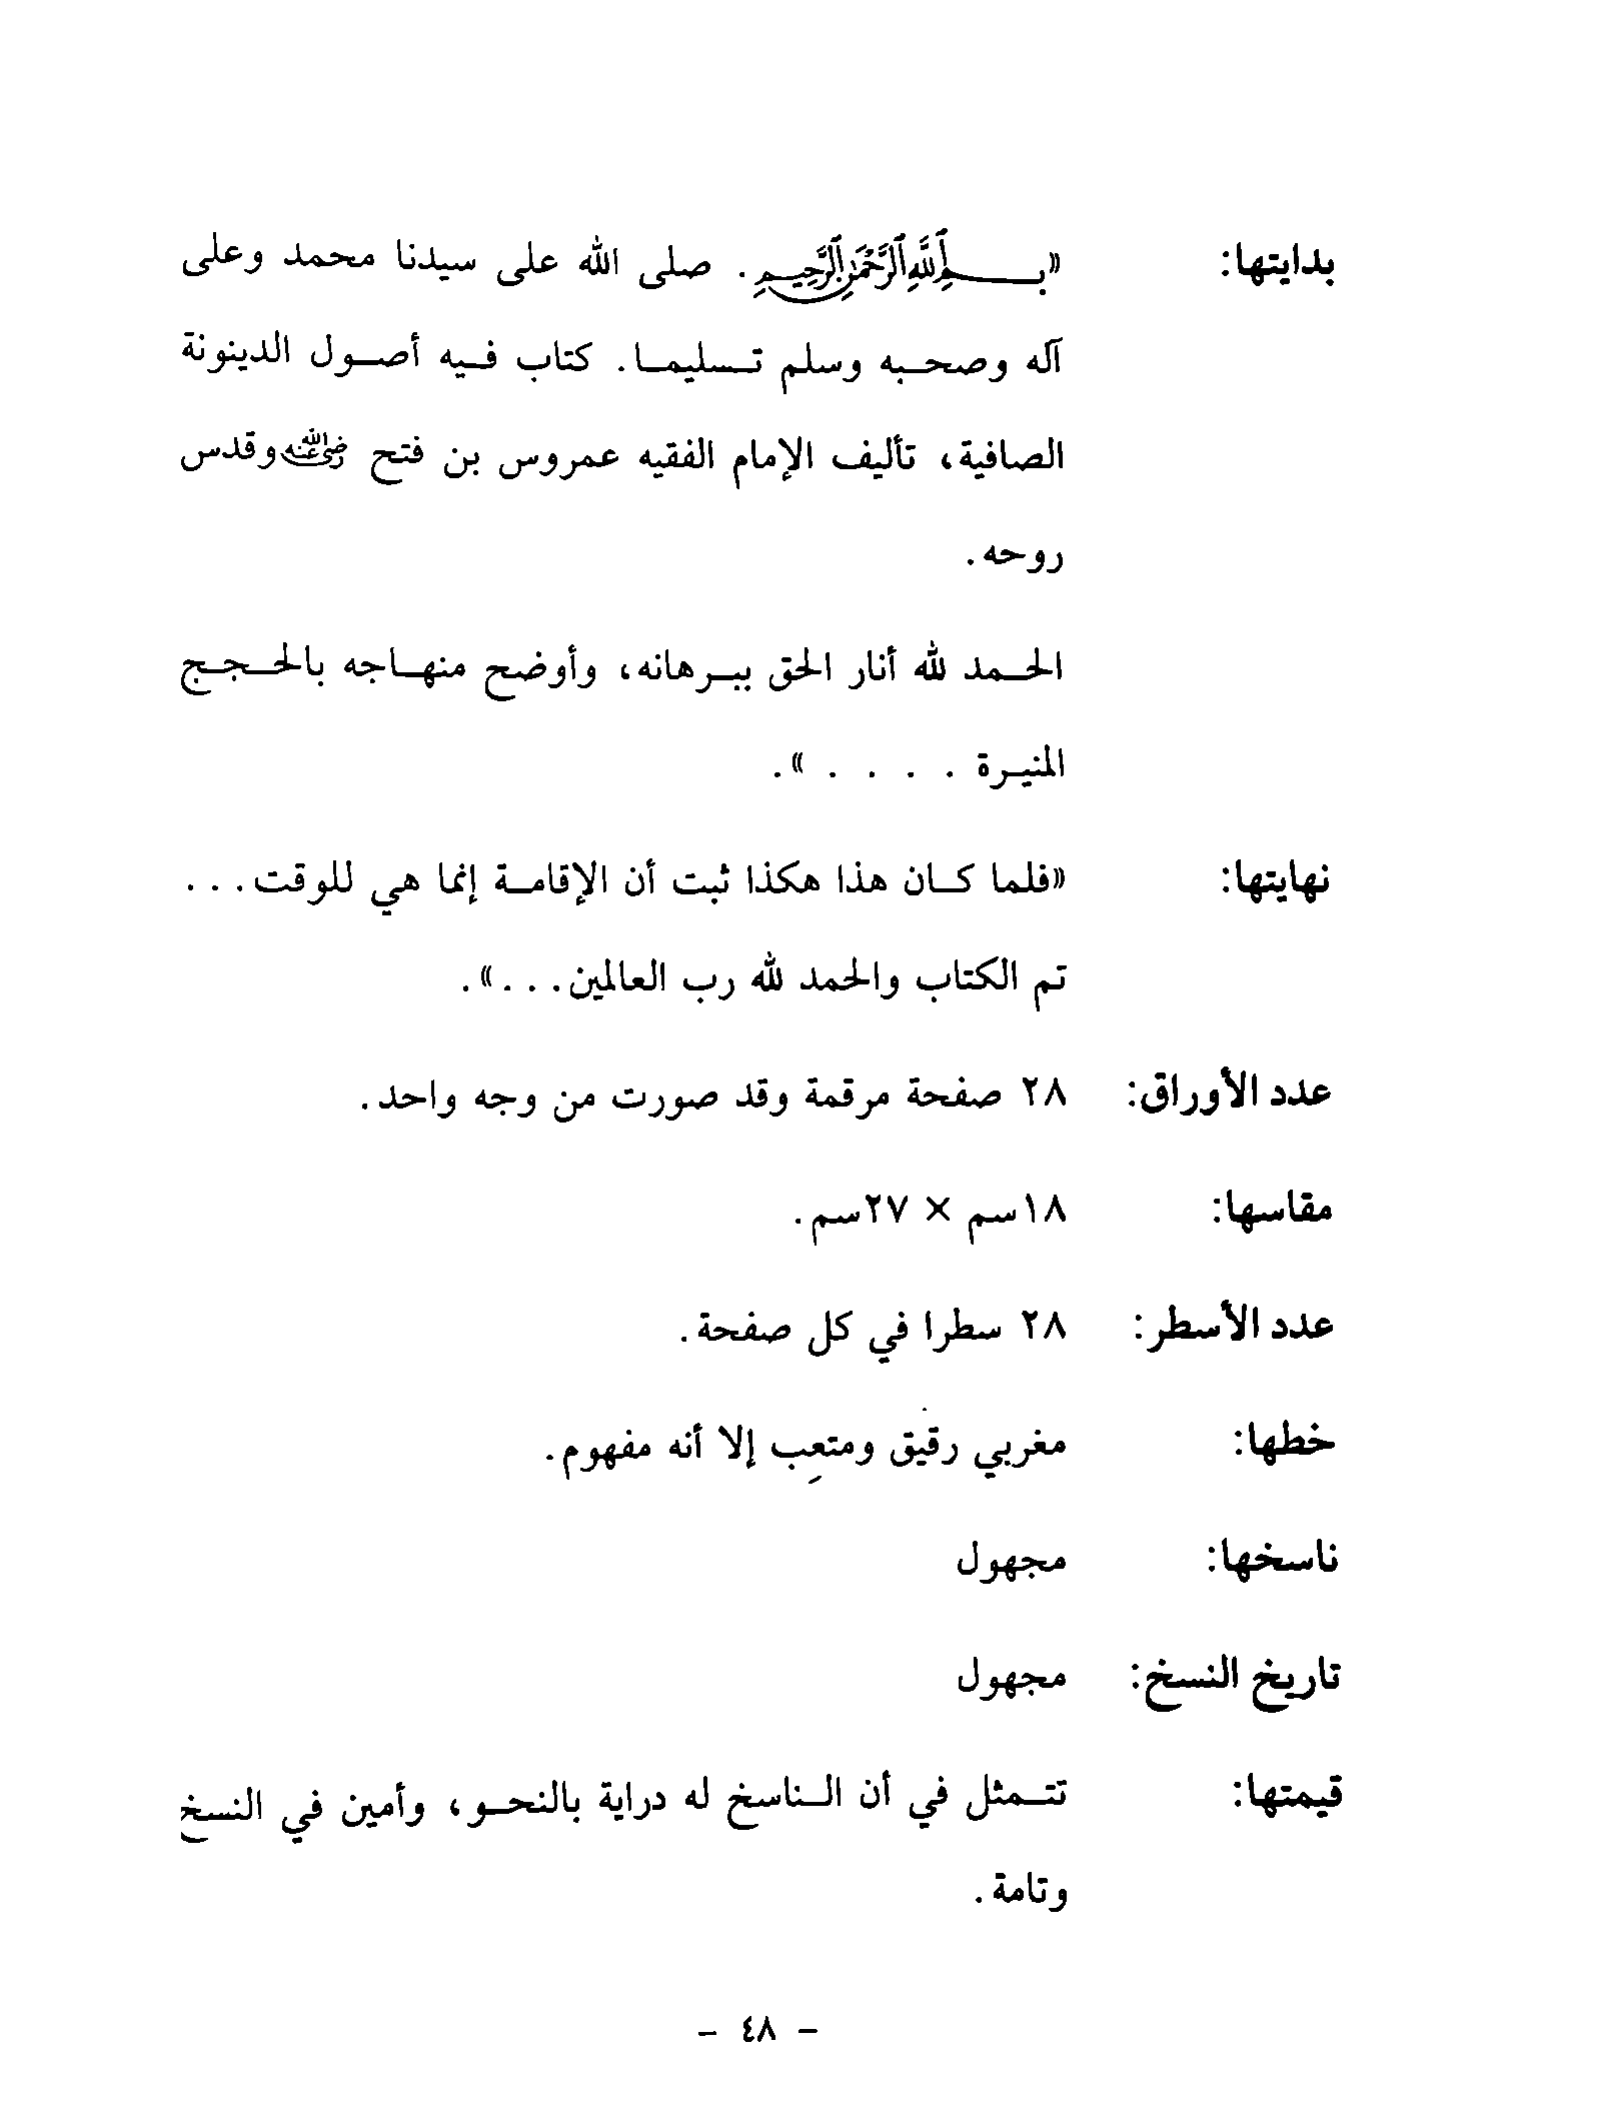 بدايتها: «بسم الله الرحمن الرحيم. صلى الله على سيدنا محمد وعلى
آله وصحبه وسلم تسليما. كتاب فيه أصول الدينونة
الصافية، تأليف الإمام الفقيه عمروس بن فتح رضي الله عنه وقدس
روحه.
الحمد لله أنار الحق ببرهانه، وأوضح منهاجه بالحجج
المنيرة . . . . ».
نهايتها: «فلما كان هذا هكذا ثبت أن الإقامة إنما هي للوقت...
تم الكتاب والحمد لله رب العالمين...».
عدد الأوراق: ٢٨ صفحة مرقمة وقد صورت من وجه واحد.
مقاسها: ١٨سم × ٢٧سم.
عدد الأسطر: ٢٨ سطرا في كل صفحة.
خطها: مغربي رقيق ومتعب إلا أنه مفهوم.
ناسخها: مجهول
تاريخ النسخ: مجهول
قيمتها: تتمثل في أن الناسخ له دراية بالنحو، وأمين في النسخ
وتامة.
- ٤٨ -